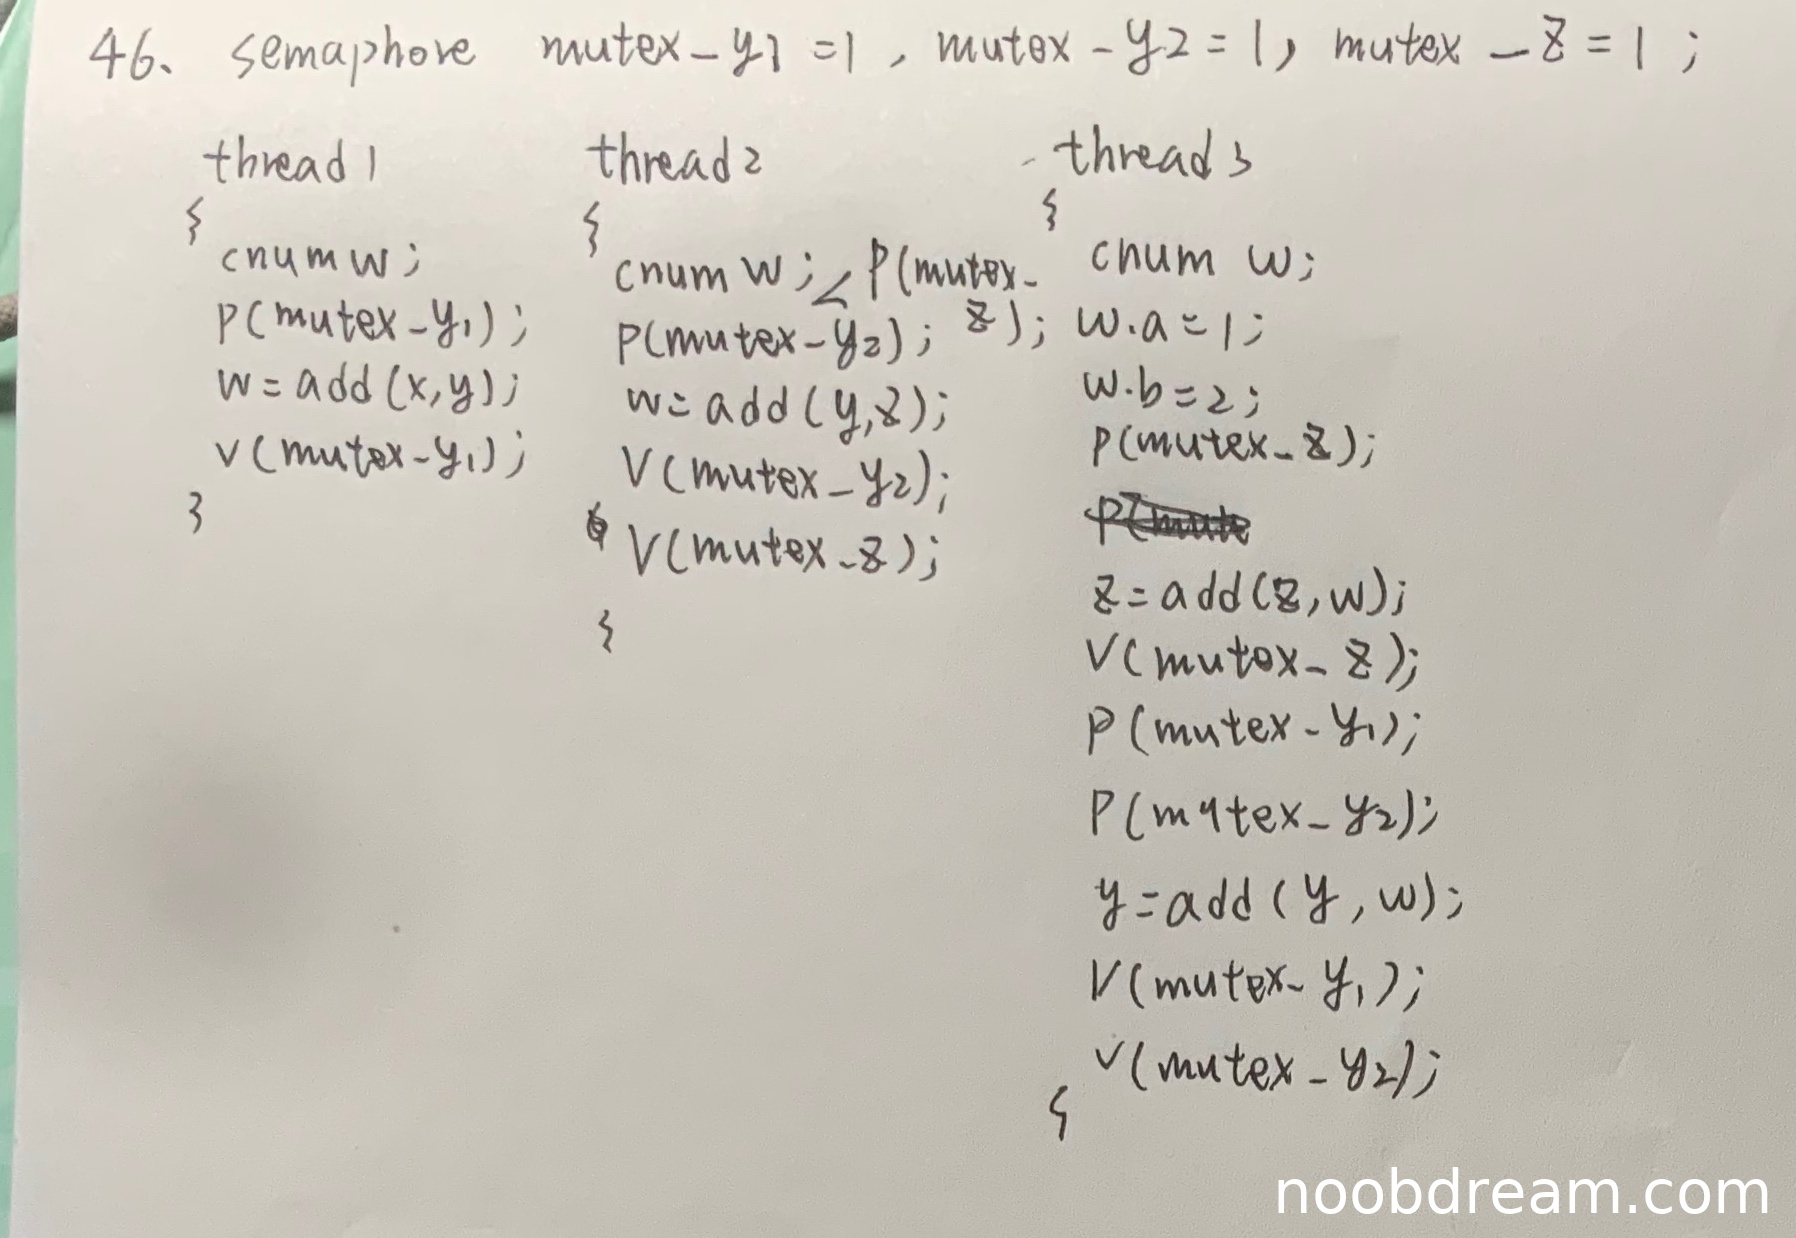 46、semaphore mutex-y1=1, mutex-y2=1, mutex-z=1;
thread1
{
cnum w;
P(mutex-y1);
w=add(x,y);
V(mutex-y1);
}
thread2
{
cnum w; P(mutex-z);
P(mutex-y2);
w=add(y,z);
V(mutex-y2);
V(mutex-z);
}
thread3
{
cnum w;
w.a=1;
w.b=2;
P(mutex-z);
z=add(z,w);
V(mutex-z);
P(mutex-y1);
P(mutex-y2);
y=add(y,w);
V(mutex-y1);
V(mutex-y2);
}
noobdream.com